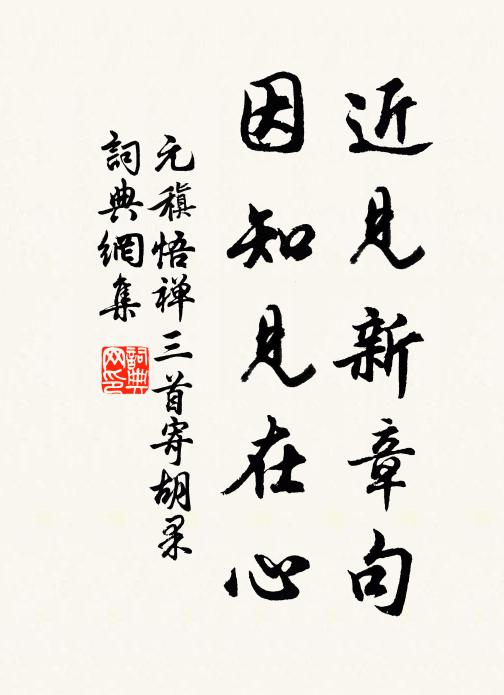 近見新章句
因知見在心
元稹悟禅三首寄胡杲
詞典網集
詞典网印